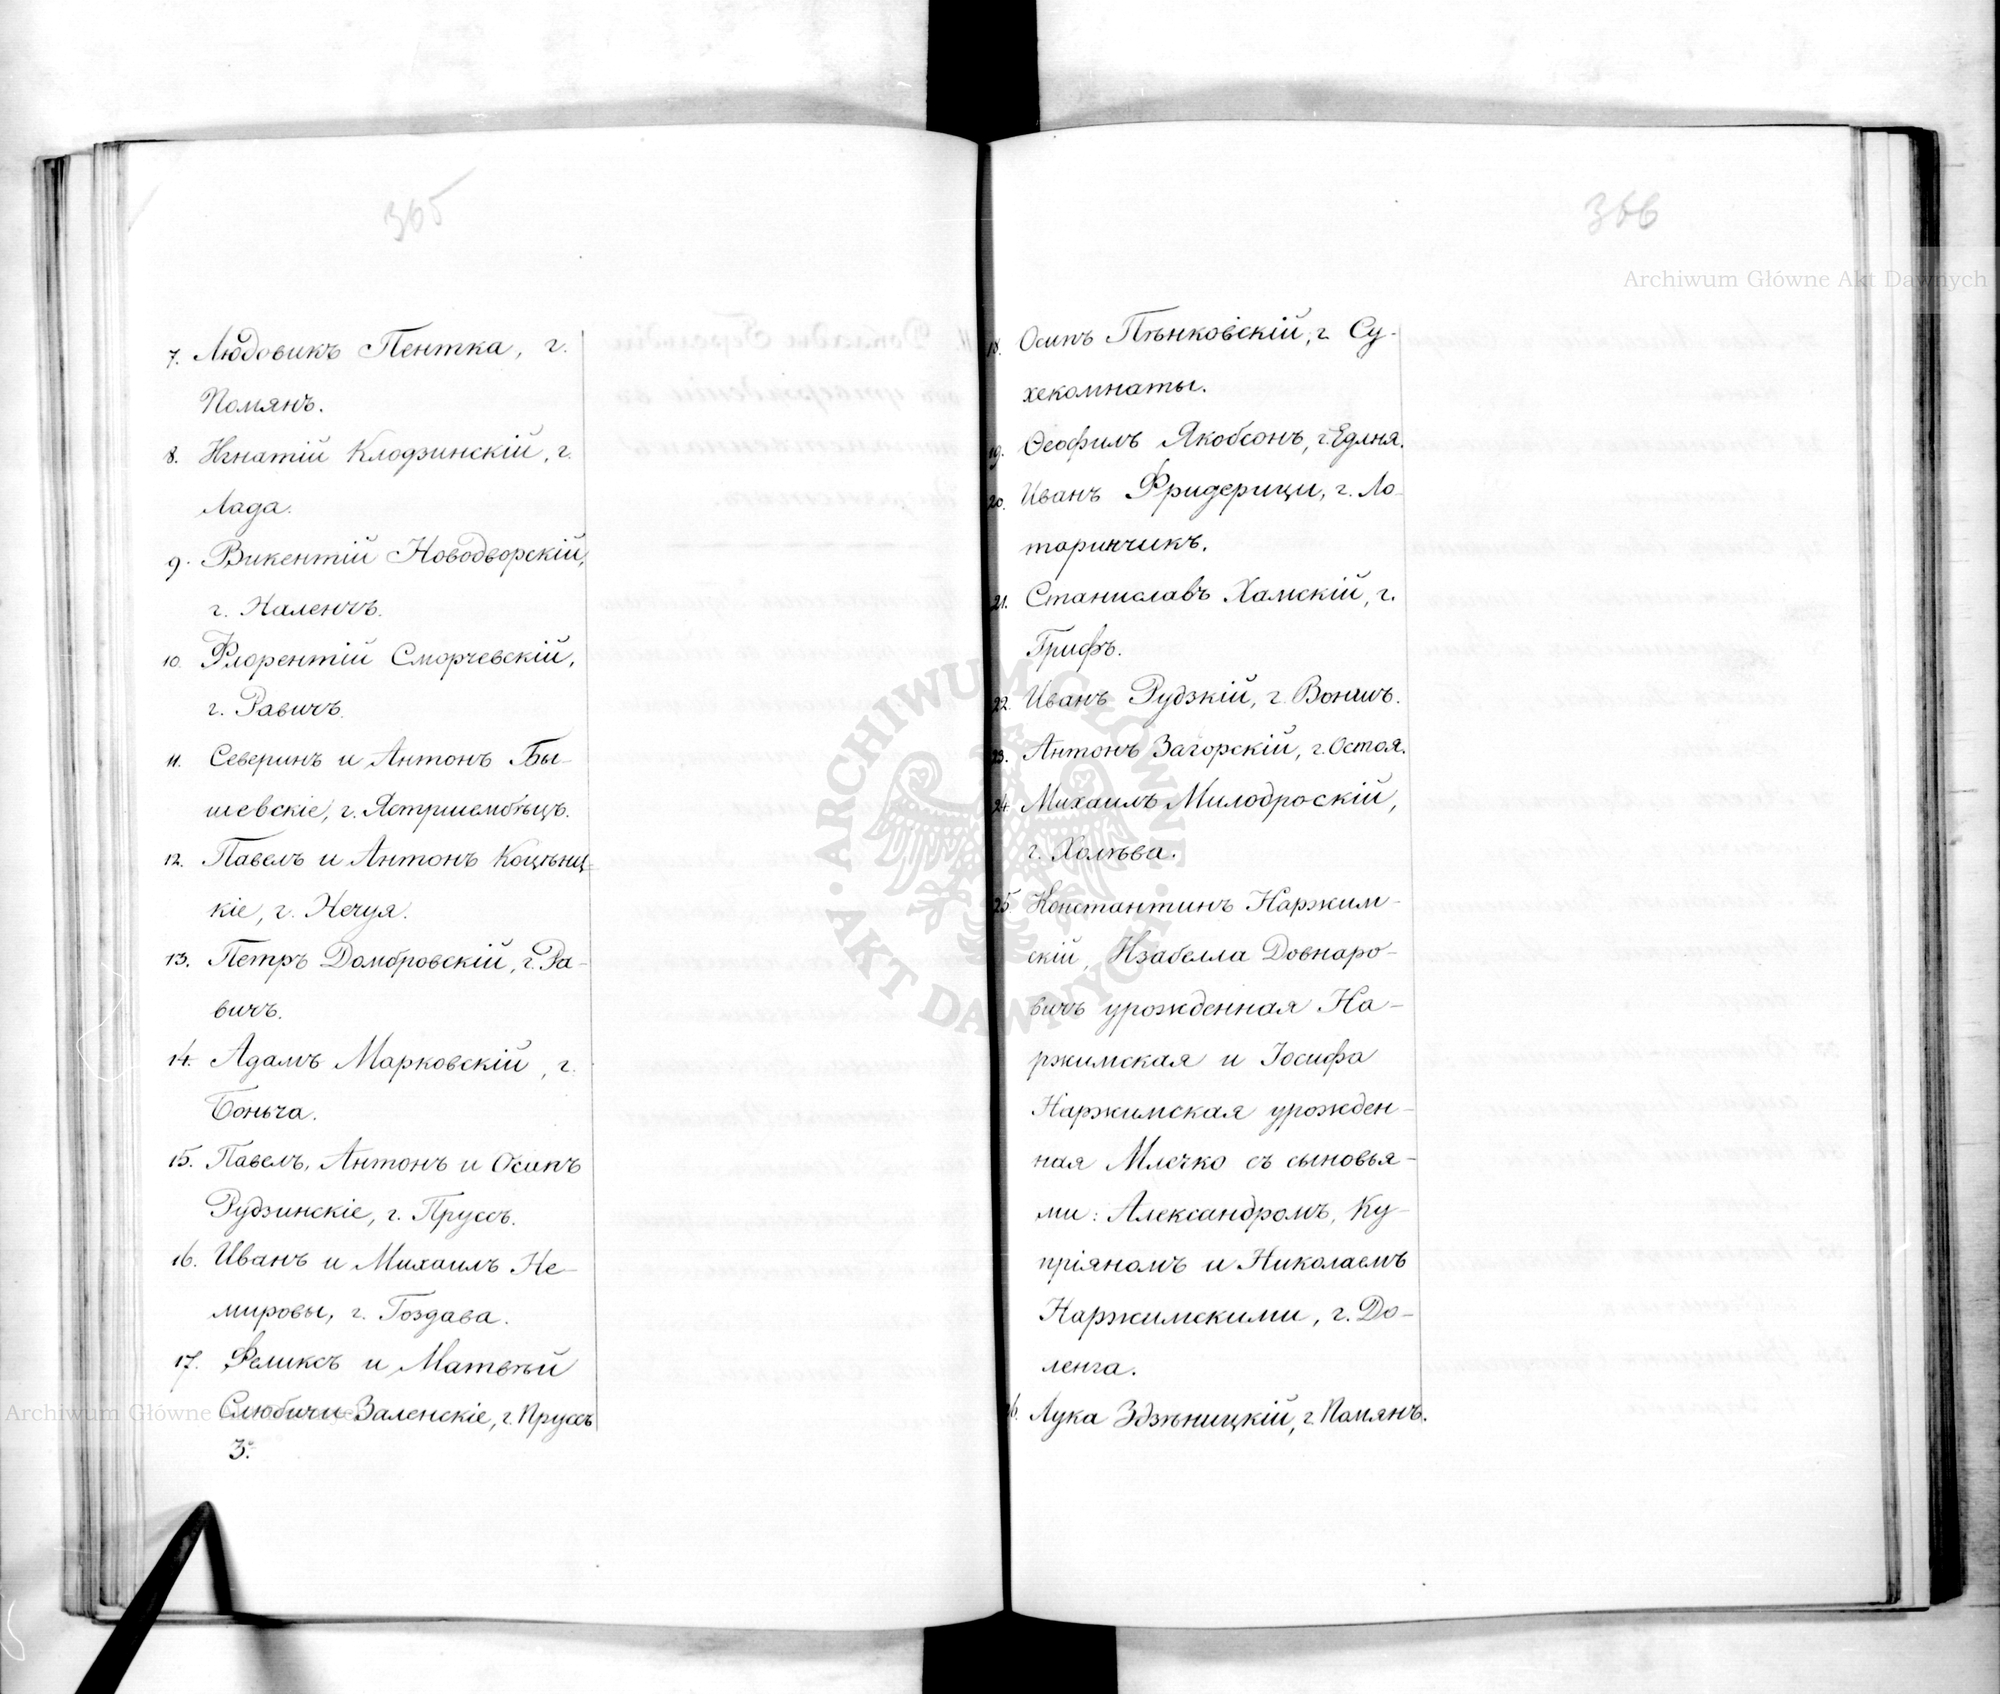 365
7. Людовикъ Пентка, г.
Помянъ.
8. Игнатій Клодзинскій, г.
Лада.
9. Викентій Новодворскій,
г. Наленчъ.
10. Флорентій Сморчевскій,
г. Равичъ.
11. Северинъ и Антонъ Бы-
шевскіе, г. Ястршембѣцъ.
12. Павелъ и Антонъ Коцѣниц-
кіе, г. Нечуя.
13. Петръ Домбровскій, г. Ра-
вичъ.
14. Адамъ Марковскій, г.
Боньча.
15. Павелъ, Антонъ и Осипъ
Рудзинскіе, г. Пруссъ.
16. Иванъ и Михаилъ Не-
мировы, г. Гоздава.
17. Феликсъ и Матвѣй
Слюбичи-Заленскіе, г. Пруссъ
3.º
366
Archiwum Główne Akt Dawnych
18. Осипъ Пѣнковскій, г. Су-
хекомнаты.
19. Ѳеофилъ Якобсонъ, г. Едлня.
20. Иванъ Фридерици, г. Ло-
таринчикъ.
21. Станиславъ Хамскій, г.
Грифъ.
22. Иванъ Рудзкій, г. Вонжъ.
23. Антонъ Загорскій, г. Остоя.
24. Михаилъ Милоброскій,
г. Холѣва.
25. Константинъ Наржим-
скій, Изабелла Довнаро-
вичъ урожденная На-
ржимская и Іосифа
Наржимская урожден-
ная Млечко съ сыновья-
ми: Александромъ, Ку-
пріяномъ и Николаемъ
Наржимскими, г. До-
ленга.
26. Лука Здзѣницкій, г. Помянъ.
ARCHIWUM GŁÓWNE
AKT DAWNYCH
Archiwum Główne